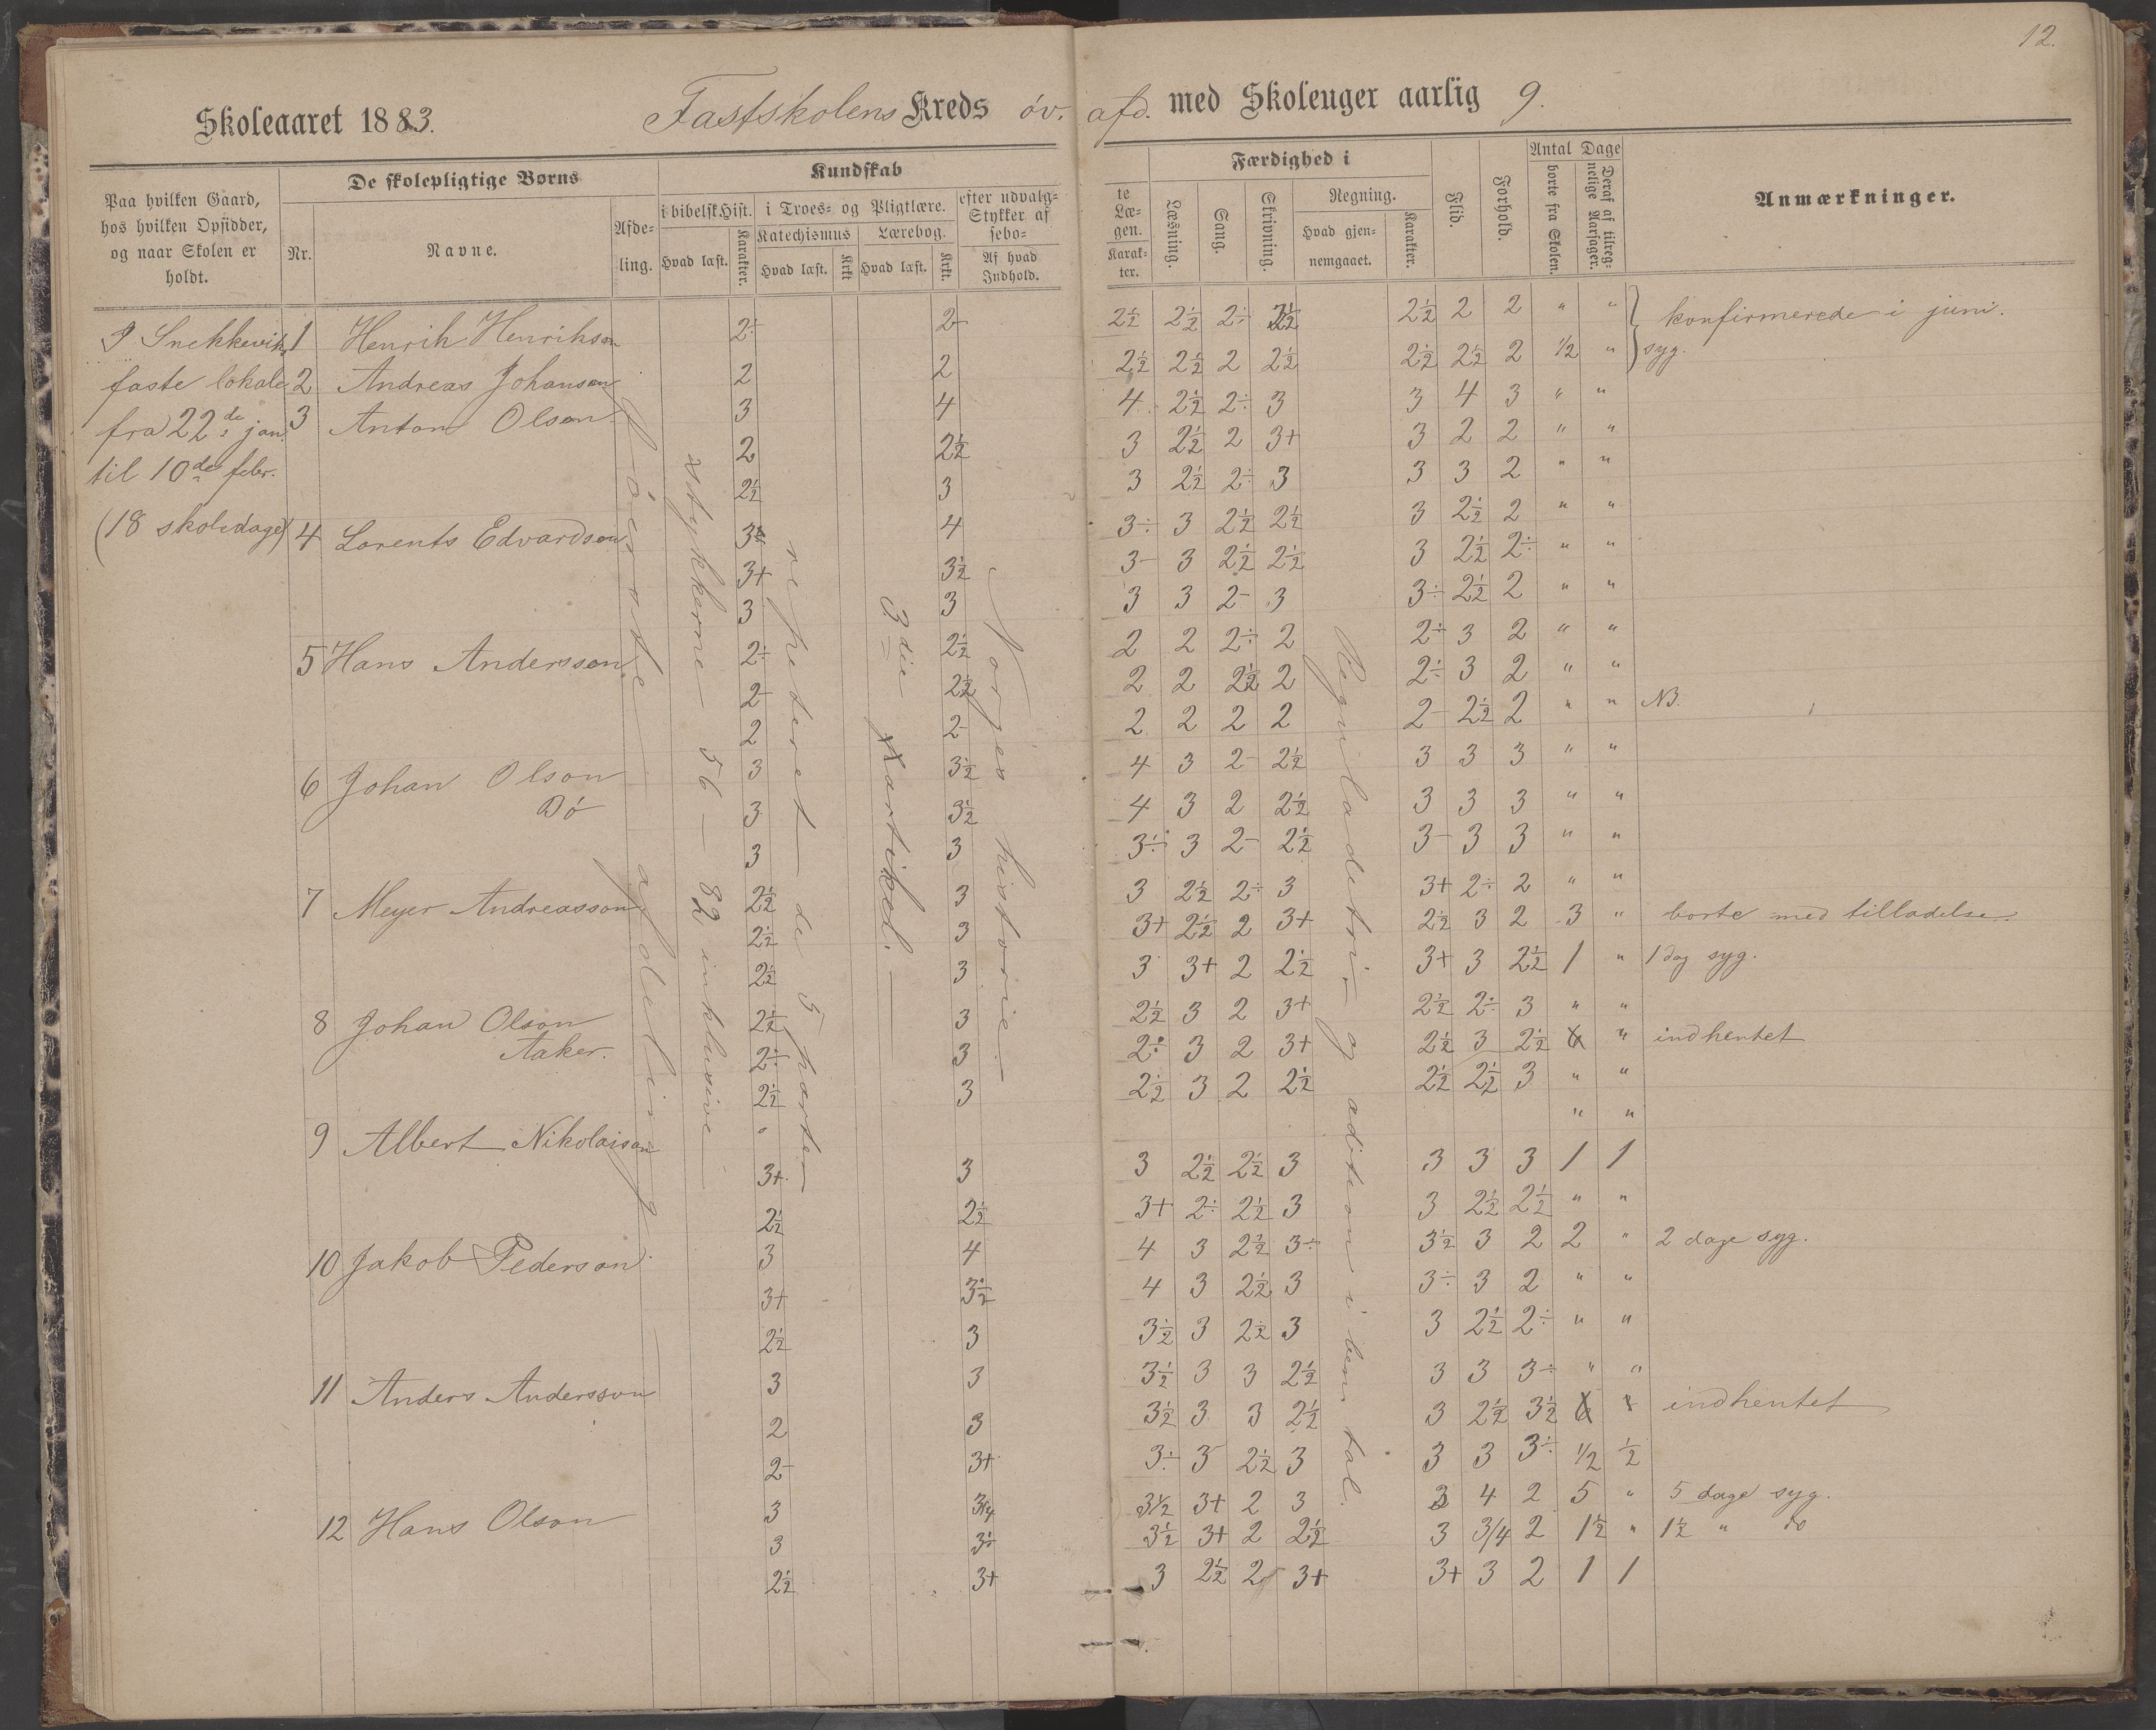 12.
Skoleaaret 1883. Fastskolens Kreds öv. afd. med Skoleuger aarlig 9.
Paa hvilken Gaard, hos hvilken Opsidder, og naar Skolen er holdt.
De skolepligtige Børns
Nr.
Navne.
Afde-ling.
Kundskab
i bibelsk Hist.
Hvad læst.
Karakter.
i Troes- og Pligtlære.
Katechismus
Hvad læst.
Krkt
Lærebog.
Hvad læst.
Krkt.
efter udvalg-
Stykker af
sebo-
Af hvad
Indhold.
te
Læ-
gen.
Karak-
ter.
Færdighed i
Læsning.
Sang.
Skrivning.
Regning.
Hvad gjen-
nemgaaet.
Karakter.
Flid.
Forhold.
Antal Dage
borte fra Skolen.
Deraf af tilreg-
nelige Aarsager.
Anmærkninger.
I Snekkevik,
faste lokale
fra 22de jan.
til 10de febr.
(18 skoledage)
överste afdeling.
stykkerne 56 – 82 inklusive
repeteret de 5 parter
3die
Norges historie
Reguladetri og adition i ben. tal.
1 Henrik Henrikson 2÷ 2- 2½ 2½ 2÷ 2½ 2½ 2 2 " " konfirmerede i juni.
2 Andreas Johanson 2 2 2½ 2½ 2 2½ 2½ 2½ 2 1/2 " syg.
3 Anton Olson 3 4 4 2½ 2÷ 3 3 4 3 " "
2 2½ 3 2½ 2 3+ 3 2 2 " "
2½ 3 3 2½ 2÷ 3 3 3 2 " "
4 Lorents Edvardson 4 3÷ 3 2½ 2½ 3 2½ 2 " "
3+ 3½ 3- 3 2½ 2½ 3 2½ 2÷ " "
3 3 3 3 2- 3 3÷ 2½ 2 " "
5 Hans Andersson 2÷ 2½ 2 2 2÷ 2 2÷ 3 2 " "
2- 2½ 2 2 2½ 2 2÷ 3 2 " "
2 2- 2 2 2 2 2- 2½ 2 " " NB.
6 Johan Olson 3 3½ 4 3 2- 2½ 3 3 3 " "
Dö 3 3½ 4 3 2 2½ 3 3 3 " "
3 3 3÷ 3 2- 2½ 3- 3 3 " "
7 Meyer Andreasson 2½ 3 3 2½ 2÷ 3 3+ 2÷ 2 " "
2½ 3 3+ 2½ 2 3+ 2½ 3 2 3 " borte med tilladelse.
2½ 3 3 3+ 2 2½ 3+ 3 2½ 1 " 1 dag syg.
8 Johan Olson 2½ 3 2½ 3 2 3+ 2½ 2÷ 3 " "
Aaker. 2÷ 3 2÷ 3 2 3+ 2½ 3 2½ " indhentet
2½ 3 2½ 3 2 2½ 2½ 2½ 3 " "
9 Albert Nikolaison " "
3+ 3 3 2½ 2½ 3 3 3 3 1 1
2½ 2½ 3+ 2÷ 2½ 3 3 2½ 2½ " "
10 Jakob Pederson 3 4 4 3 2½ 3÷ 3½ 3 2 2 " 2 dage syg.
3+ 3½ 4 3 2½ 3 3÷ 3 2 " "
2½ 3 3½ 3 2½ 3 3 2½ 2÷ " "
11 Anders Andersson 3 3 3½ 3 3 2½ 3 3 3÷ " "
2 3 3½ 3 3 2½ 3 2½ 3½ indhentet
2- 3+ 3÷ 3 2½ 3 3 3 3÷ 1/2 ½
12 Hans Olson 3 3/4 3½ 3+ 2 3 3 4 2 5 " 5 dage syg.
3 3÷ 3½ 3+ 2 2½ 3 3/4 2 1½ " 1½ " do
2½ 3+ 3 2½ 2 3+ 3+ 3 2 1 1